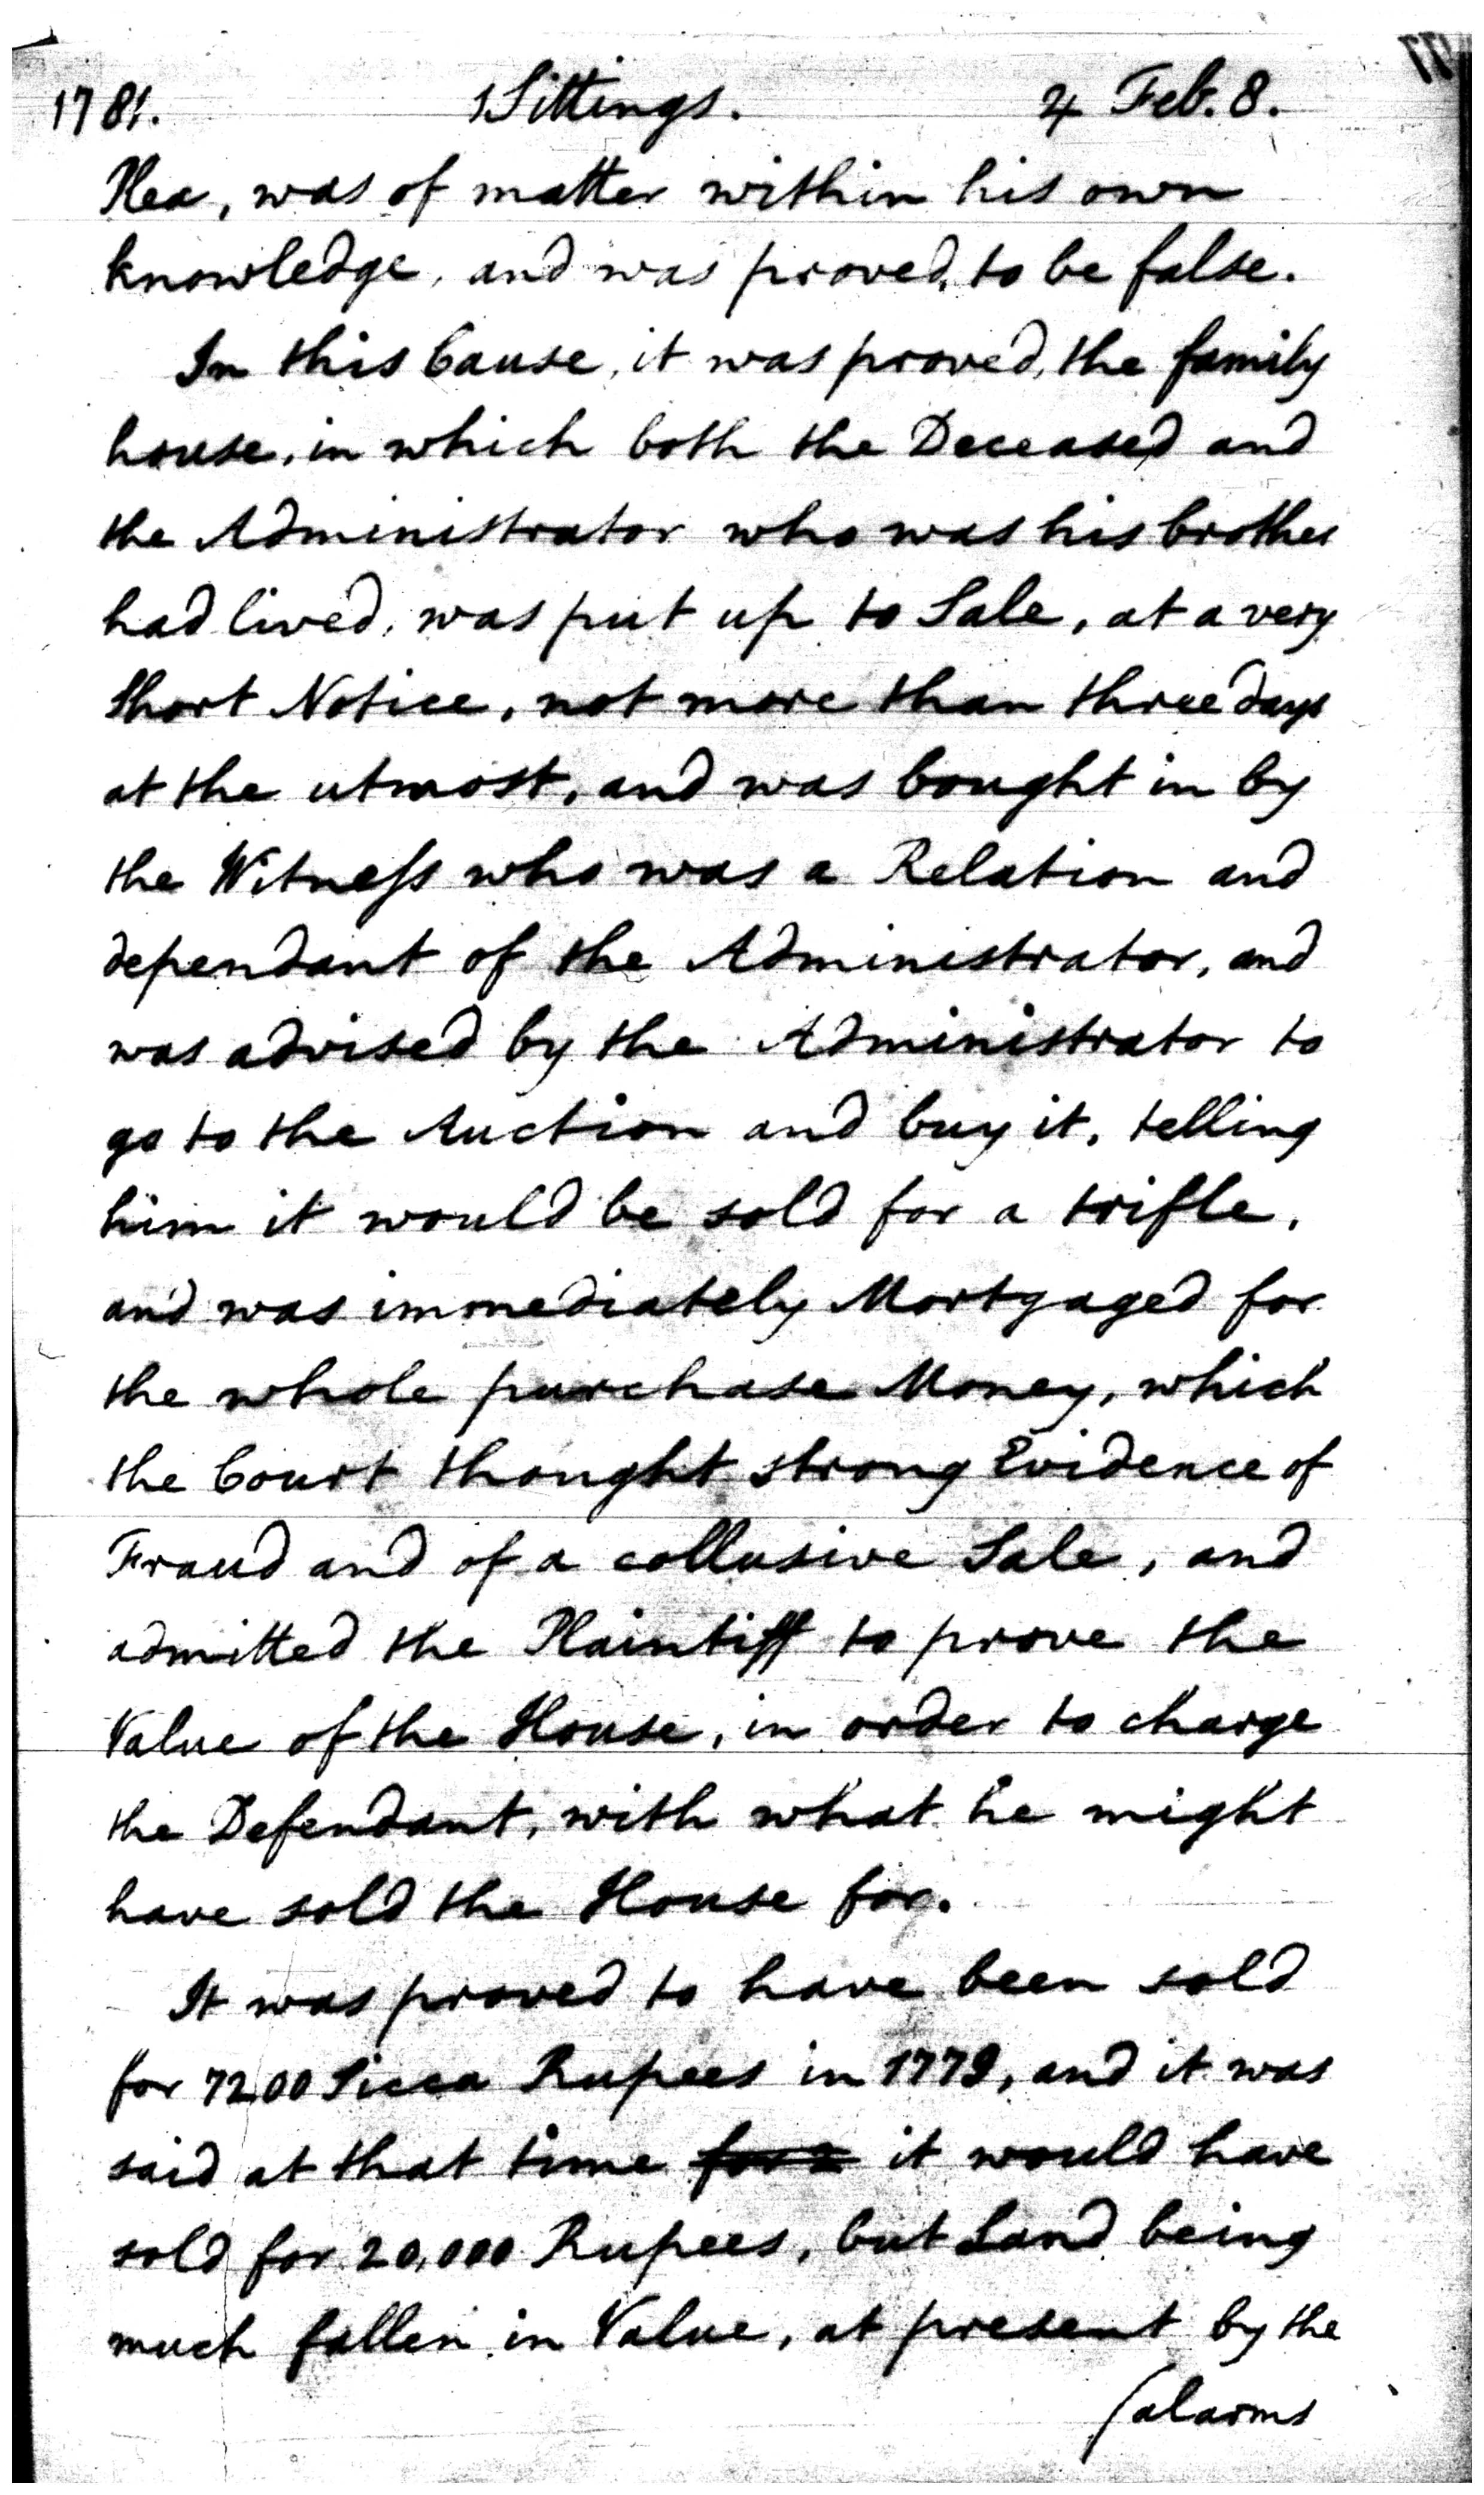 1781. Sittings. 4 Feb. 8.
Plea, was of matter within his own
knowledge, and was proved, to be false.
In this Cause, it was proved, the family
house, in which both the Deceased and
the Administrator who was his brother
had lived, was put up to Sale, at a very
Short Notice, not more than three days
at the utmost, and was bought in by
the Witness who was a Relation and
dependant of the Administrator, and
was advised by the Administrator to
go to the Auction and buy it, telling
him it would be sold for a trifle,
and was immediately Mortgaged for
the whole purchase Money, which
the Court thought strong Evidence of
Fraud and of a collusive Sale, and
admitted the Plaintiff to prove the
Value of the House, in order to charge
the Defendant, with what he might
have sold the House for.
It was proved to have been sold
for 7200 Sicca Rupees in 1779, and it was
said at that time it would have
sold for 20,000 Rupees, but Land being
much fallen in Value, at present by the
/alarms